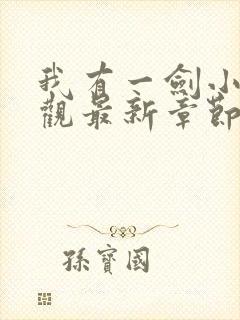 我有一劍小
觀最新章節
孫寶國